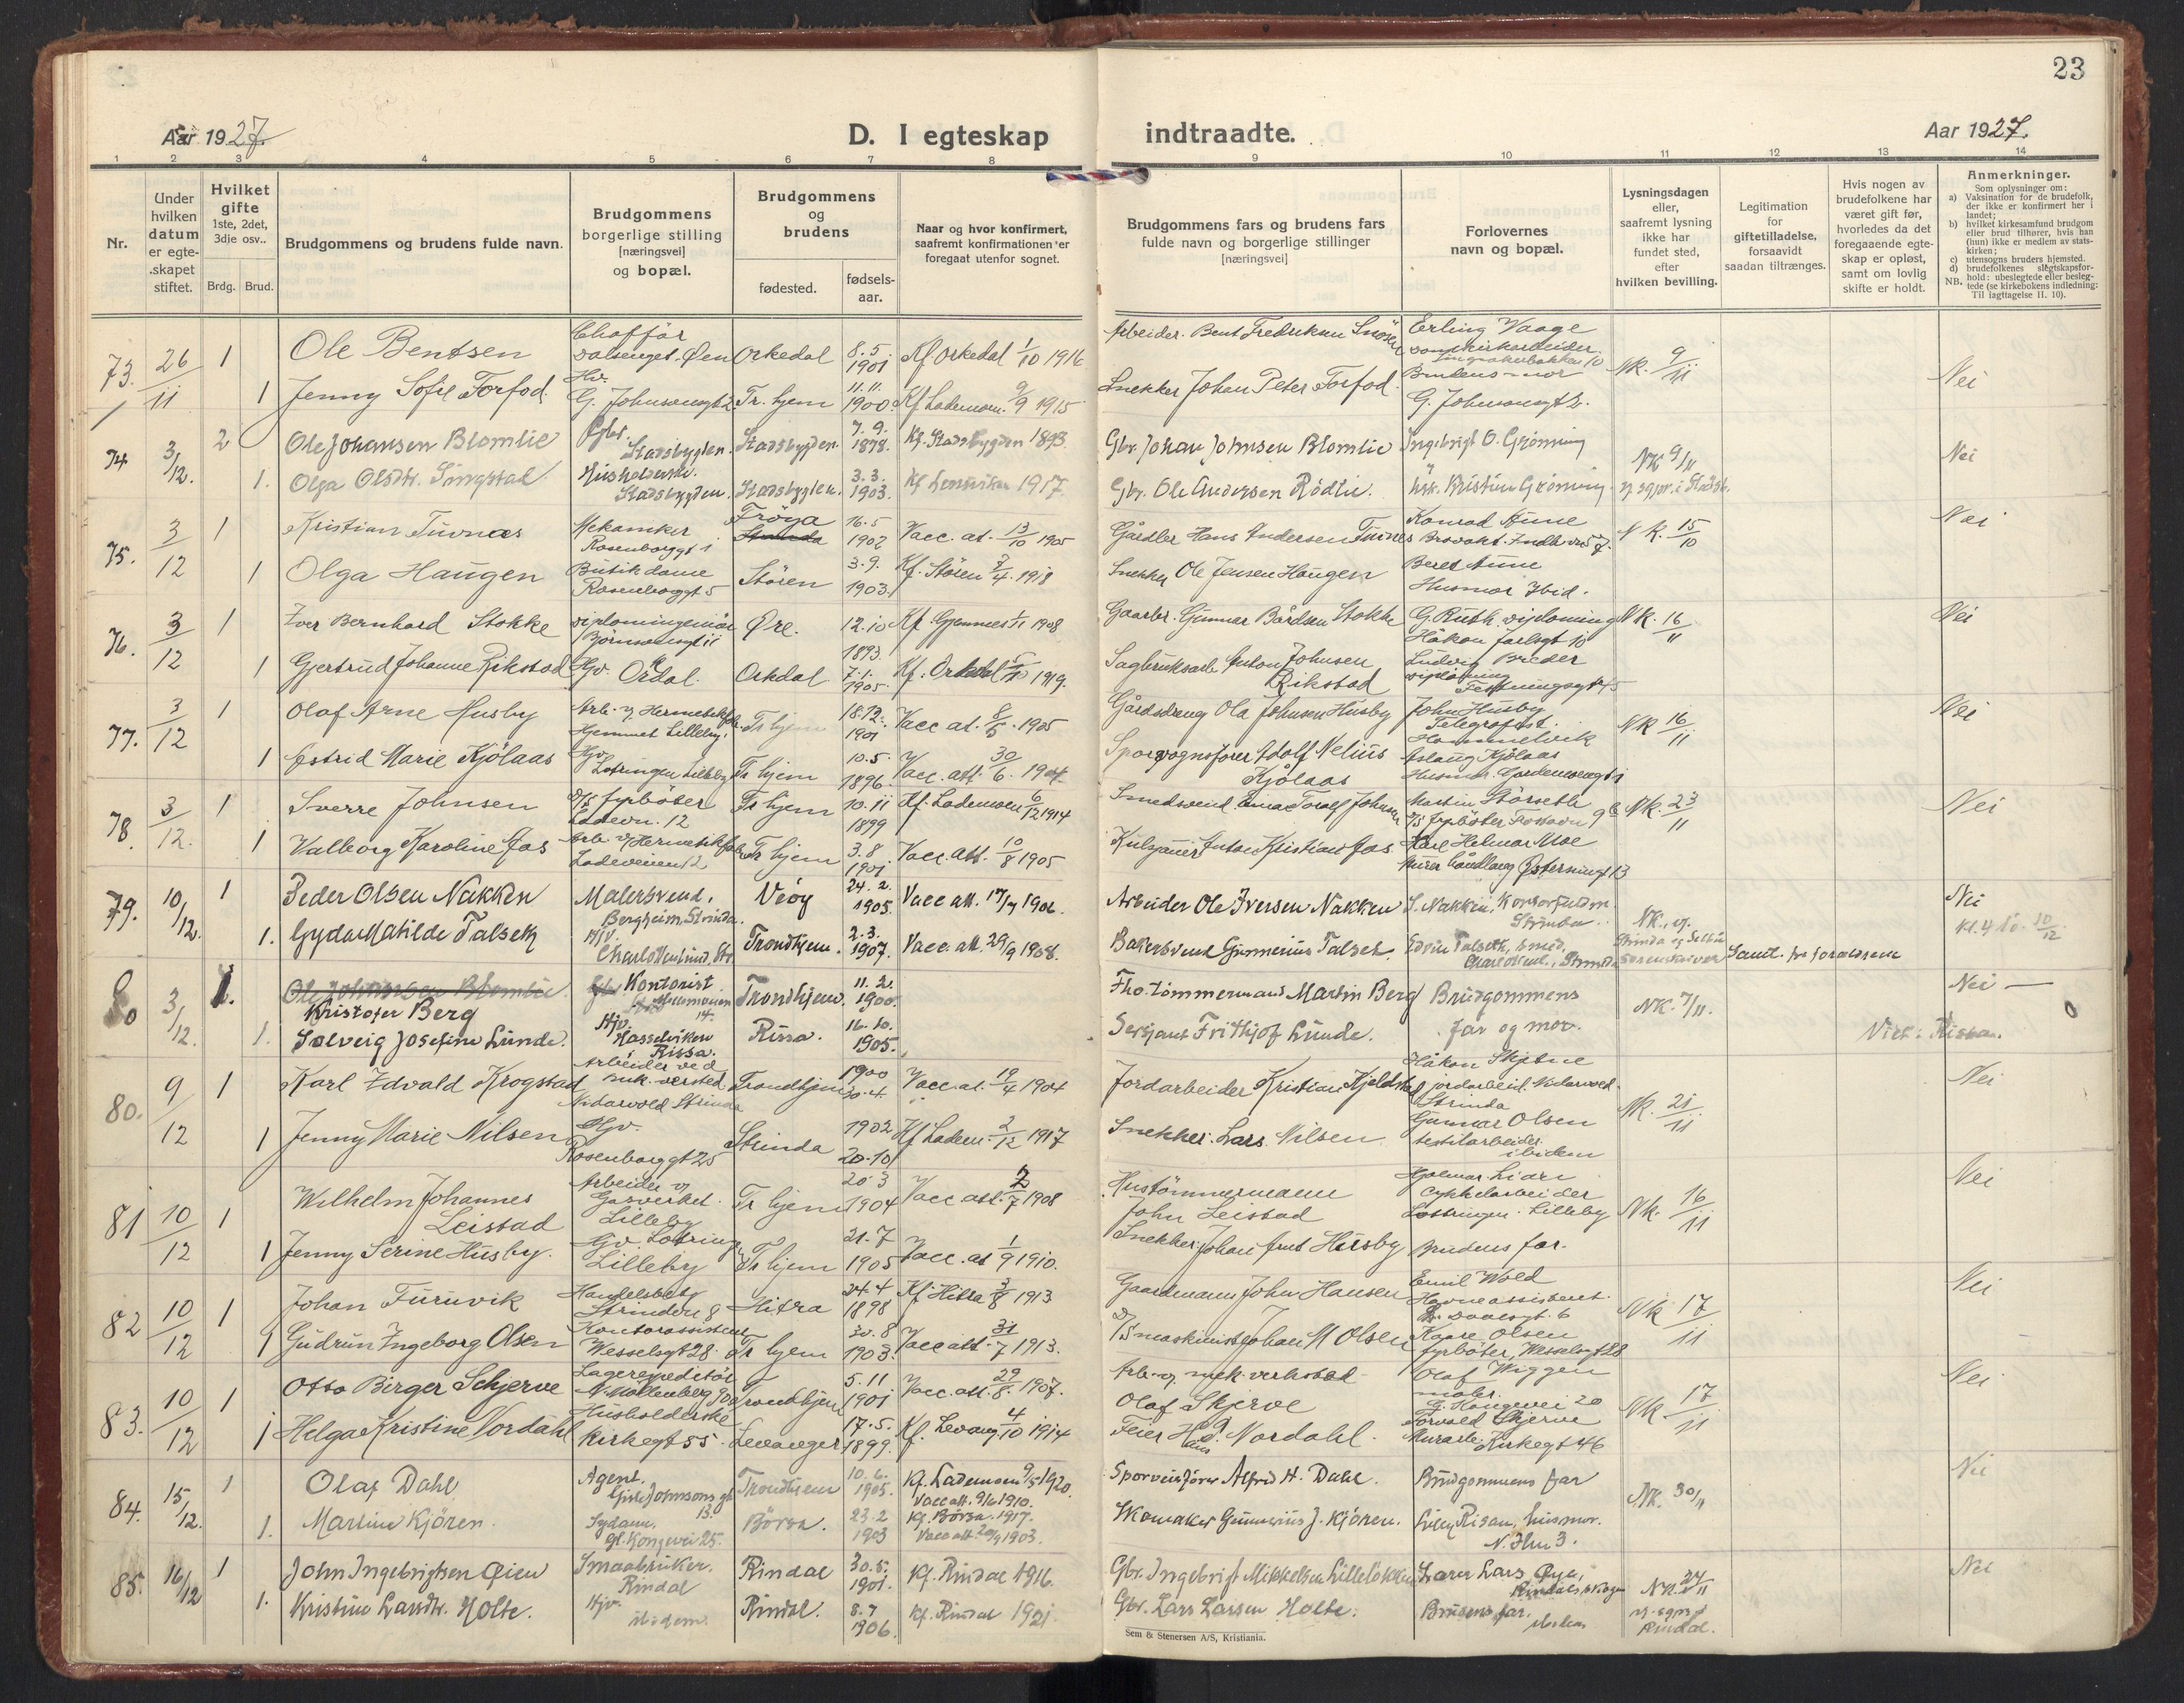 23
Aar 1927.
D. I egteskap
indtraadte.
Aar 1927.
1 2 3 4 5 6 7 8 9 10 11 12 13 14
Nr.
Under hvilken datum er egte-skapet stiftet.
Hvilket gifte 1ste, 2det, 3dje osv..
Brdg. Brud.
Brudgommens og brudens fulde navn.
Brudgommens borgerlige stilling [næringsvei] og bopæl.
Brudgommens og brudens
fødested.
fødsels-aar.
Naar og hvor konfirmert, saafremt konfirmationen er foregaat utenfor sognet.
Brudgommens fars og brudens fars fulde navn og borgerlige stillinger [næringsvei]
Forlovernes navn og bopæl.
Lysningsdagen eller, saafremt lysning ikke har fundet sted, efter hvilken bevilling.
Legitimation for giftetilladelse, forsaavidt saadan tiltrænges.
Hvis nogen av brudefolkene har været gift før, hvorledes da det foregaaende egte-skap er opløst, samt om lovlig skifte er holdt.
Anmerkninger.
Som oplysninger om:
a) Vaksination for de brudefolk, der ikke er konfirmert her i landet;
b) hvilket kirkesamfund brudgom eller brud tilhører, hvis han (hun) ikke er medlem av stats-kirken;
c) utensogns bruders hjemsted.
d) brudefolkenes slegtskapsfor-hold: ubeslegtede eller besleg-tede (se kirkebokens indledning: Til iagttagelse II. 10).
NB.
73. 26/11 1 Ole Bentsen Chaffør Dalsenget. Øen Orkedal 8.5 1901 Kf Orkedal 1/10 1916 Arbeider. Bent Fredriksen Erling Vaage NK. 9/11 Nei
1 Jenny Sofie Forfod. Hv. Tr. hjem 11.11. 1900. Kf Lademoen. 9/9 1915 Snekker Johan Peter Forfod. Brudens mor
74 3/12. 2 Ole Johansen Blomlie Stadsbygden. Stadsbygden. 7.9. 1878. Kf. Stadsbygden 1893 Gbr. Johan Johnsen Blomlie Ingebrigt O. Grönning NK 9/11 Nei
1. Olga Olsdtr. Singstal. Husholderske. Stadsbygden. Stadsbygden. 3.3. 1903. Kf 1917 Gbr. Ole Andersen Rödlie. Kristine Grönning
75. 3/12 1 Kristian Tuvnæs Mekaniker Rosenborggt 1 Fröya 16.5 1902 Vacc. at. 13/10 1905 Gårdbr. Hans Andersen Konrad Aune NK. 15/10 Nei
1 Olga Haugen Butikdame Rosenborggt 5 Stören 3.9. 1903. Kf. Stören 7/4. 1918 Snekker Ole Jensen Haugen Beret Aune Husmor Ibid.
76. 3/12 1 Iver Bernhard Stokke Diplomingeniør Öre. 12.10 1893. Kf. 1908 Gaarbr. Gunnar Bårdsen Stokke G. Ruth. diploming Håkon Jarlsgt 10 NK. 16/11 Nei
1 Gjertrud Johanne Rikstad Hjv. Ordal. Orkdal 7.1. 1905. Kf. 1919. Sagbruksarb. Anton Johnsen Rikstad Ludvig Breder
77. 3/12 1 Olaf Arne Husby Arb. v. Hermetikfabr. Hjemmet Lilleby. Tr hjem 18.12. 1901 Vacc at. 8/5. 1905 Gårdsdreng Ola Johnsen Husby John Husby Telegrafist. Hommelvik NK 16/11 Nei
1 Estrid Marie Kjölaas Hjv. Lotringen Lilleby Tr hjem 10.5. 1896. Vacc. att. 30/6. 1904. Sporvognsfører Adolf Nelius Kjölaas Aslaug Kjölaas
78. 3/12. 1 Sverre Johnsen D/S fyrböter Ladevn. 12 Tr hjem 10.11 1899 Kf. Lademoen 6/12 1914 Martin Störseth NK. 23/11 Nei
1 Valborg Karoline Aas Arb. v/ Hermetikfabr. Ladeveien 12. Tr hjem 3.8 1901 Vacc. att. 10/8 1905 Anton Kristian Aas Karl Helmar Moe
79. 10/12. 1 Peder Olsen Nakken Malersvend, Bergheim. Strinda. Veöy 24.2. 1905. Vacc att. 17/7 1906. Arbeider Ole Iversen Nakken S. Nakken, NK., og Strinda og Selbu Sorenskriver Nei kl. 4 10/12
1. Gyda Matilde Talsek Hjv. Trondhjem. 2.3. 1907. Vacc. att. 29/9 1908. Bakersvend Gunnerius Talset. Samt. fra forældrene
80 3/12. 1. Ole Johansen Blomlie Kristofer Berg Kontorist Trondhjem 11.2. 1900. Tömmermand Martin Berg Brudgommens far og mor. NK. 7/11. Nei —
1. Solveig Josefine Lunde. Hjv. Hasselviken i Rissa. Rissa. 16.10. 1905. Sersjant Frithjof Lunde. Rissa.
80. 9/12 1 Karl Edvald Krogstad Arbeider ved mek. versted Nidarvold Strinda Trondhjem 1900 30.4 Vacc. at. 19/4 1904 Jordarbeider Kristian Håkon Skjetne jordarbeid. Nidarvold. Strinda NK. 21/11 Nei
1 Jenny Marie Nilsen Hjv. Rosenborggt 25 Strinda 1902 20.10 Kf Ladem. 2/12 1917 Snekker. Lars Nilsen Gunnar Olsen ibidem
81 10/12 1 Wilhelm Johannes Leistad Arbeider v/ Gasverket. Lilleby Tr hjem 20.3 1904 Vacc att. 2/7 1908 Hustömmermann John Leistad Hjalmar Lidri Cykkelarbeider Lottringen. Lilleby NK. 16/11 Nei
1 Jenny Serine Husby. Hjv. Lotringen Lilleby Tr hjem 21.7 1905 Vacc. at 1/9 1910. Snekker. Johan Arnt Husby Brudens far.
82 10/12 1 Johan Furuvik Handelsbetj Strindvn 8 Hitra 24.4 1898 Kf Hitra 3/8 1913 Gaardmann John Hansen Emil Wold Havneassistent. NK 17/11 Nei
1 Gudrun Ingeborg Olsen Kontorassistent Wesselsgt 28. Tr hjem 30.8 1903. Vacc att. 31/7 1913. D/S maskinist Johan M Olsen Kaare Olsen fyrböter, Wesselsgt 28
83. 10/12 1 Otto Birger Schjerve Lagerexpeditör N. Möllenberg Trondhjem 5.11 1901 Vacc. att. 29/8. 1907. Arb. v. mek. verksted Olaf Skjerve Olaf Wiggen maler. NK. 17/11 Nei
1 Helga Kristine Nordahl Husholderske Kirkegt 55. Levanger 17.5. 1899. Kf. Levang 4/10 1914 Feier Hans Nordahl. Torvald Skjerve Murarb. Kirkegt 46
84. 15/12. 1 Olaf Dahl Agent. Gisle Johnsons gt 13. Trondhjem 10.6. 1905. Kf. Lademoen 9/5 1920. Vacc att. 9/6 1910. Sporveisförer Alfred H. Dahl. Brudgommens far NK. 30/11 Nei
1. Martine Kjören. Sydame. Gl. Kongevei 25. Börsa. 23.2 1903 Kf. Börsa. 1917. Skomaker Gunnerius J. Kjören. Risan, husmor.
85. 16/12 1 John Ingebrigtsen Øien Smaabruker. Rindal Rindal 30.5. 1901. Kf. Rindal 1916. Gbr. Ingebrigt Mikkelsen Lillelökken Lærer Lars Öye, NK. 24/11 Rindal. Nei
1. Kristine Larsdtr. Holte. Hjv. ibidem. Rindal. 8.7 1906. Kf. Rindal 1921. Gbr. Lars Larsen Holte. Brudens far. ibidem
Sem & Stenersen A/S, Kristiania.